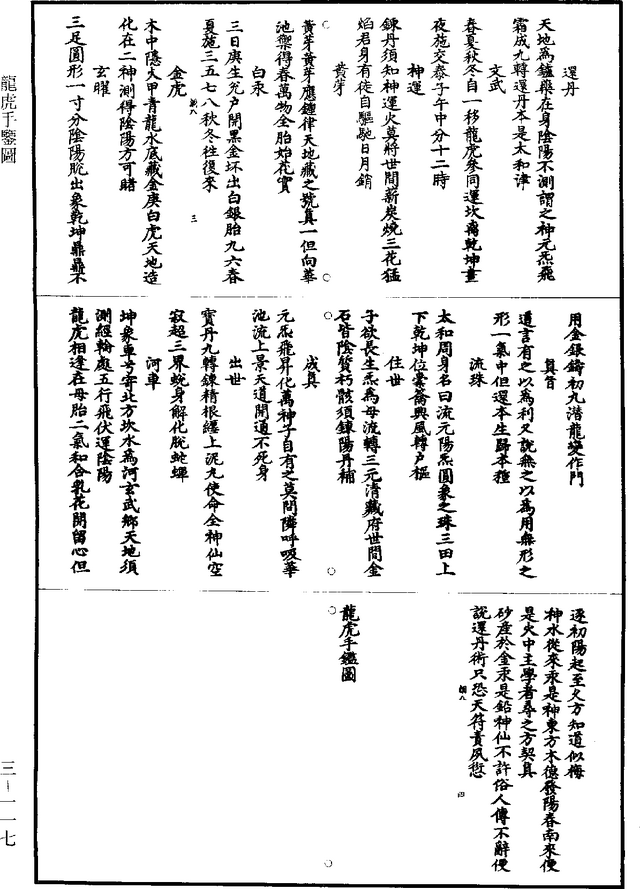 還丹
天地為鑪藥在身陰陽不測謂之神元炁飛
霜成九轉還丹本是太和津
文武
春夏秋冬自一移龍虎參同運坎离乾坤晝
夜施交泰子午中分十二時
神運
鍊丹須知神運火莫將世間薪炭燒三花猛
焰君身有徒自驅馳日月銷
黃芽
黃芽黃芽應鍾律天地藏之號真一但向華
池禦得春萬物全胎始花實
白汞
三日庚生兊戶開黑金坏出白銀胎九六春
夏施三五七八秋冬往復來
金虎
木中隱火甲青龍水底藏金庚白虎天地造
化在二神測得陰陽方可睹
玄曜
三足圓形一寸分陰陽脫出象乾坤鼎鼎不
用金銀鑄初九潛龍變作門
真旨
遺言有之以為利又說無之以為用無形之
形一氣中但還本生歸本種
流珠
太和周身名曰流元陽炁圓象之珠三田上
下乾坤位橐籥興風轉戶樞
住世
子欲長生炁為母流轉三元清藏府世間金
石皆陰質朽骸須鍊陽丹補
成真
元炁飛昇化萬神子自有之莫問隣呼吸華
池流上景天道開通不死身
出世
寶丹九轉鍊精根纔上泥丸使命全神仙空
寂超三界蛻身解化脫蛇蟬
河車
坤象車号寄北方坎水為河玄武鄉天地須
測經輪處五行飛伏運陰陽
龍虎相逢在母胎二氣和合乳花開留心但
逐初陽起至文方知道似梅
神水從來汞是神東方木德發陽春南來便
是火中主學者尋之方契真
砂產於金汞是鉛神仙不許俗人傳不辭便
說還丹術只恐天符責夙愆
龍虎手鑑圖
龍虎手鑒圖
三－一一七